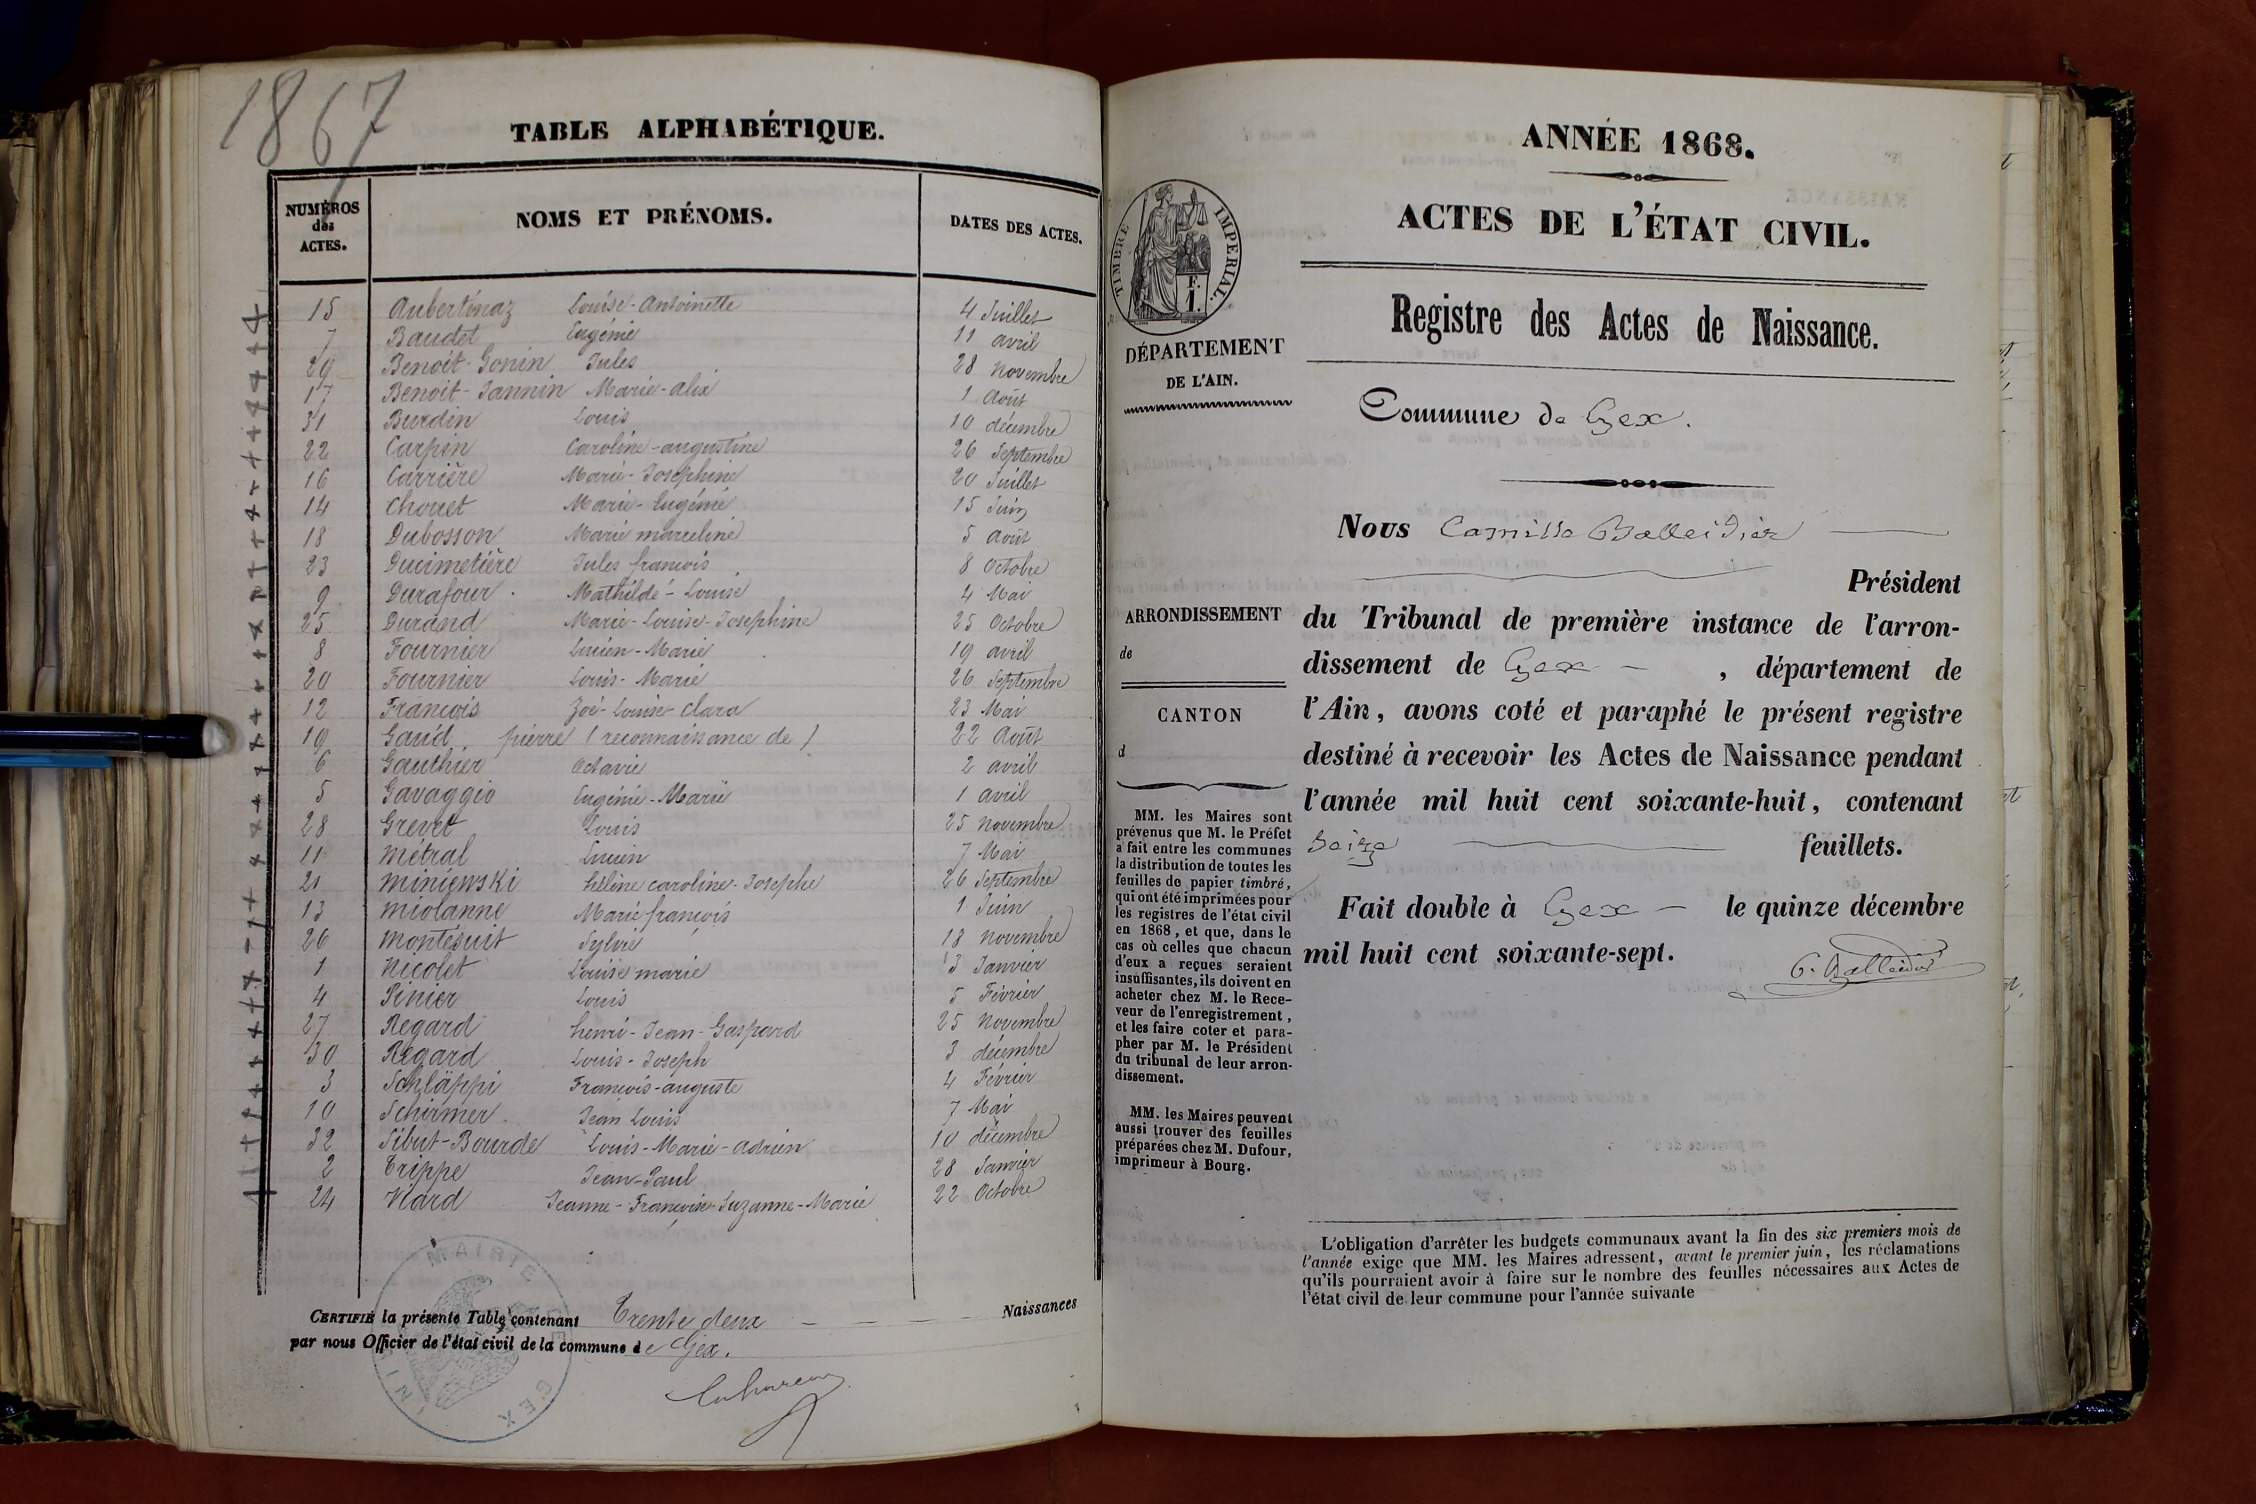 1867
TABLE ALPHABÉTIQUE.
NUMÉROS des ACTES. NOMS ET PRÉNOMS. DATES DES ACTES.
15 Aubertinaz Louise-Antoinette 4 Juillet
7 Baudet Eugénie 11 avril
29 Benoit-Gonin Jules 28 novembre
17 Benoit-Jannin Marie-alix 1 Août
31 Burdin Louis 10 décembre
22 Carpin Caroline-augustine 26 Septembre
16 Carrière Marie-Josephine 20 Juillet
14 Chouet Marie-Eugénie 15 Juin
18 Dubosson Marie marceline 5 août
23 Ducimetière Jules françois 8 Octobre
9 Durafour. Mathilde-Louise 4 Mai
25 Durand Marie-Louise-Josephine 25 Octobre
8 Fournier Lucien-Marie 19 avril
20 Fournier Louis-Marie 26 Septembre
12 François Zoé-Louise-Clara 23 Mai
19 Gavid, pierre (reconnaissance de) 22 Août
6 Gauthier Octavie 2 avril
5 Gavaggio Eugénie-Marie 1 avril
28 Grevet Louis 25 novembre
11 Métral Lucien 7 Mai
21 Miniewski hélène caroline-Josephe 26 Septembre
13 Miolanne Marie françois 1 Juin
26 Montésuit Sylvie 18 novembre
1 Nicolet Louise marie 3 Janvier
4 Pinier Louis 5 Février
27 Regard henri-Jean-Gaspard 25 novembre
30 Regard Louis-Joseph 3 décembre
3 Schläppi François-auguste 4 Février
10 Schirmer. Jean Louis 7 Mai
32 Sibut-Bourde Louis-Marie-Adrien 10 décembre
2 Trippe Jean-Paul 28 Janvier
24 Viard Jeanne-Françoise-Suzanne-Marie 22 Octobre
MAIRIE DE GEX
CERTIFIÉ la présente Table contenant Trente deux Naissances
par nous Officier de l'état civil de la commune de Gex.
ANNÉE 1868.
ACTES DE L'ÉTAT CIVIL.
Registre des Actes de Naissance.
TIMBRE IMPÉRIAL.
F.
1.
DÉPARTEMENT
DE L'AIN.
Commune de Gex.
ARRONDISSEMENT
de
CANTON
d
MM. les Maires sont
prévenus que M. le Préfet
a fait entre les communes
la distribution de toutes les
feuilles de papier timbré,
qui ont été imprimées pour
les registres de l'état civil
en 1868, et que, dans le
cas où celles que chacun
d'eux a reçues seraient
insuffisantes, ils doivent en
acheter chez M. le Rece-
veur de l'enregistrement,
et les faire coter et para-
pher par M. le Président
du tribunal de leur arron-
dissement.
MM. les Maires peuvent
aussi trouver des feuilles
préparées chez M. Dufour,
imprimeur à Bourg.
Nous Camille Balleidier
Président
du Tribunal de première instance de l'arron-
dissement de Gex, département de
l'Ain, avons coté et paraphé le présent registre
destiné à recevoir les Actes de Naissance pendant
l'année mil huit cent soixante-huit, contenant
Seize feuillets.
Fait double à Gex le quinze décembre
mil huit cent soixante-sept.
C. Balleidier
L'obligation d'arrêter les budgets communaux avant la fin des six premiers mois de
l'année exige que MM. les Maires adressent, avant le premier juin, les réclamations
qu'ils pourraient avoir à faire sur le nombre des feuilles nécessaires aux Actes de
l'état civil de leur commune pour l'année suivante